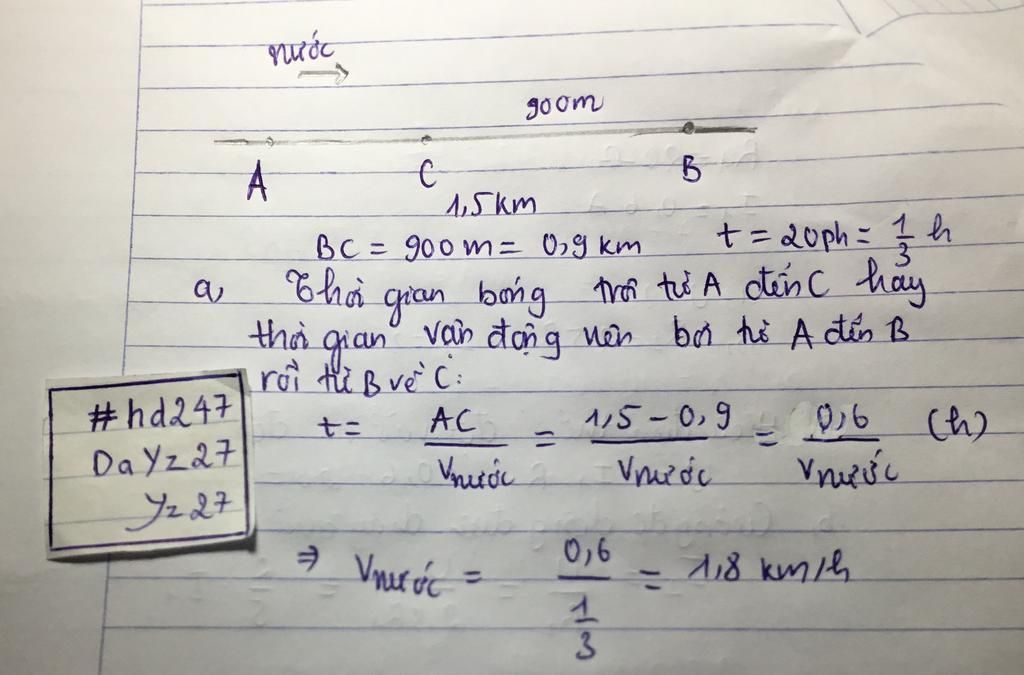 nước
900m
A C B
1,5km
BC = 900m = 0,9 km t = 20ph = 1/3 h
a, Thời gian bóng trôi từ A đến C hay
thời gian vận động viên bơi từ A đến B
rồi từ B về C:
t = AC/Vnước = 1,5 - 0,9/Vnước = 0,6/Vnước (h)
⇒ Vnước = 0,6/1/3 = 1,8 km/h
#hd247
DaYz27
Yz27